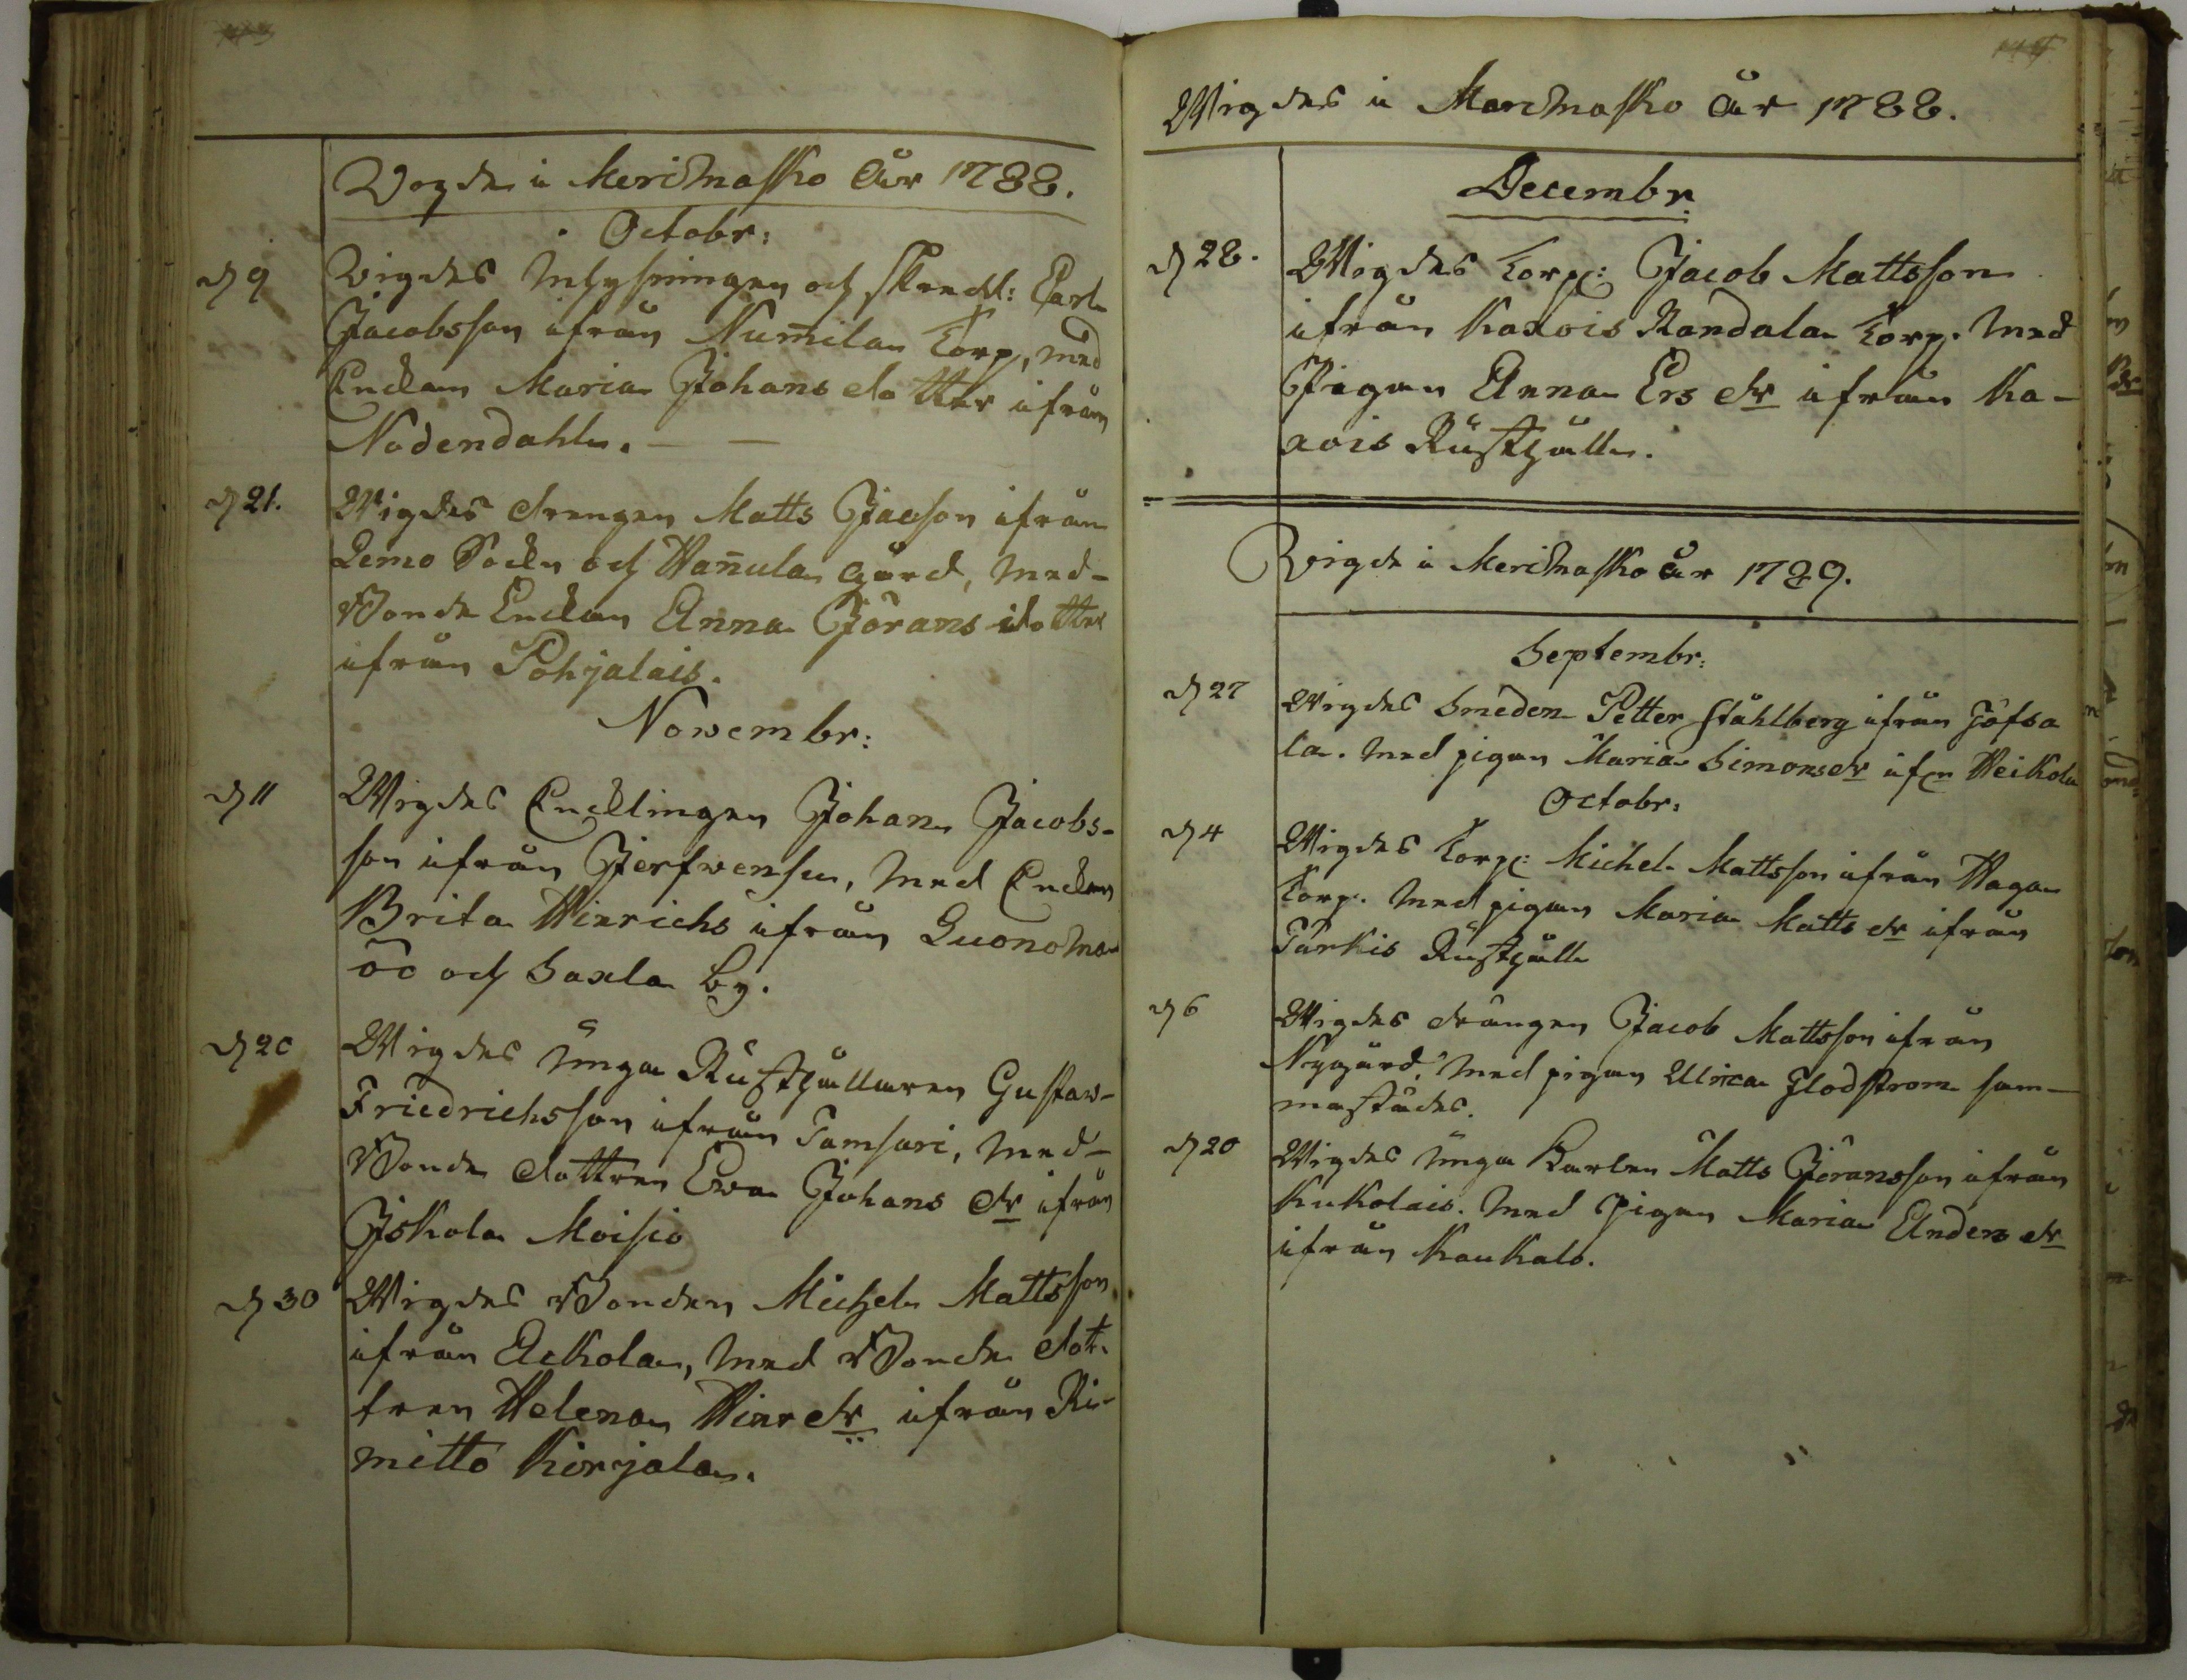 Vigde i Merimasko År 1788.
Octobr:
d 9 Vigdes och Skredd: Carl
Jacobsson ifrån Numila Torp, med
Enckan Maria Johans dotter ifrån
Nodendahl.
d 21. Wigdes drengen Matts Jacson ifrån
Lemo Sockn och Wanula gård, med
Bonde Enckan Anna Jörans dotter
ifrån Pohjalais.
Novembr:
d 11 Wigdes Encklingen Johan Jacobs-
son ifrån Jerfwensu, med Enckan
Brita Hinrichs ifrån Luonoma
öö och Saxla by.
d 20 Wigdes unga Rusthållaren Gustav
Friedrichsson ifrån Tamsari, med
Bonde dottren Ewa Johans dr ifrån
Iskola Moisio
d 30 Wigdes Bonden Michel Mattsson
ifrån Ackola, med Bonde dot-
tren Helena Hinr dr ifrån Ri-
mitto Kirjala.
Wigdes i Merimasko år 1788.
Decembr.
d 28. Wigdes Torp: Jacob Mattsson
ifrån Kaxois Randala Torp. med
Pigan Anna Ers dr ifrån Ka-
xois Rusthåll.
Vigde i Merimasko år 1789.
Septembr:
d 27 Wigdes Smeden Petter Ståhlberg ifrån Töfsa
la. med pigan Maria Simons dr ifrn Heikola
Octobr:
d 4 Wigdes Torp: Michel Mattsson ifrån Haga
Torp. med pigan Maria Matts dr ifrån
Turkis Rusthåll
d 6 Wigdes drängen Jacob Mattsson ifrån
Nygård, med pigan Ulrica Flodstrom sam-
mastädes.
d 20 Wigdes unga Karlen Matts Jöransson ifrån
Kukolais. med Pigan Maria Anders dr
ifrån Kaukais.